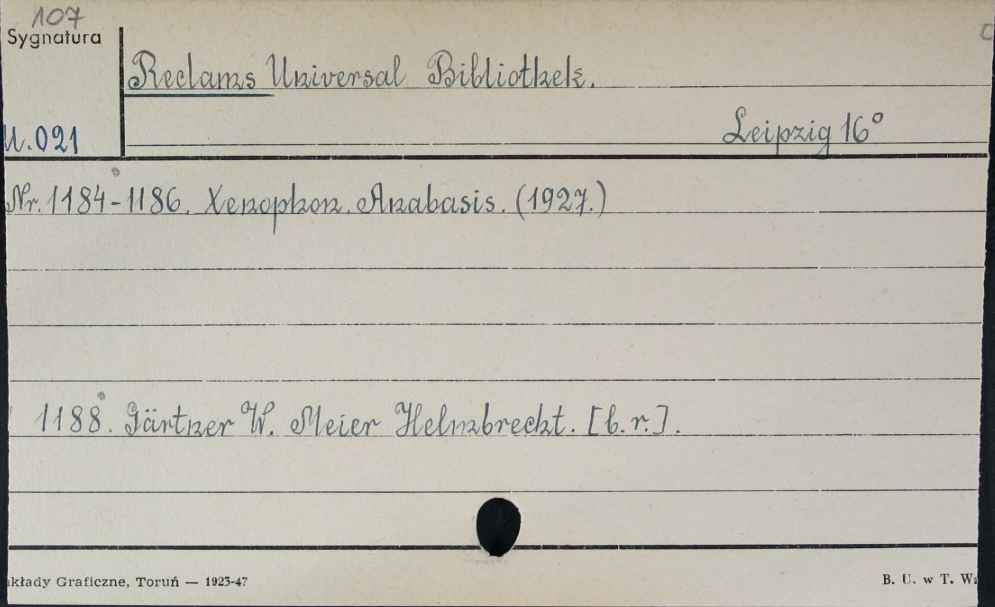 107
Sygnatura
Reclams Universal Bibliothek.
U.021
Leipzig 16°
Nr. 1184-1186. Xenophon. Anabasis. (1927.)
1188. Gärtner W. Meier Helmbrecht. [b.r.].
kłady Graficzne, Toruń — 1923-47
B. U. w T.